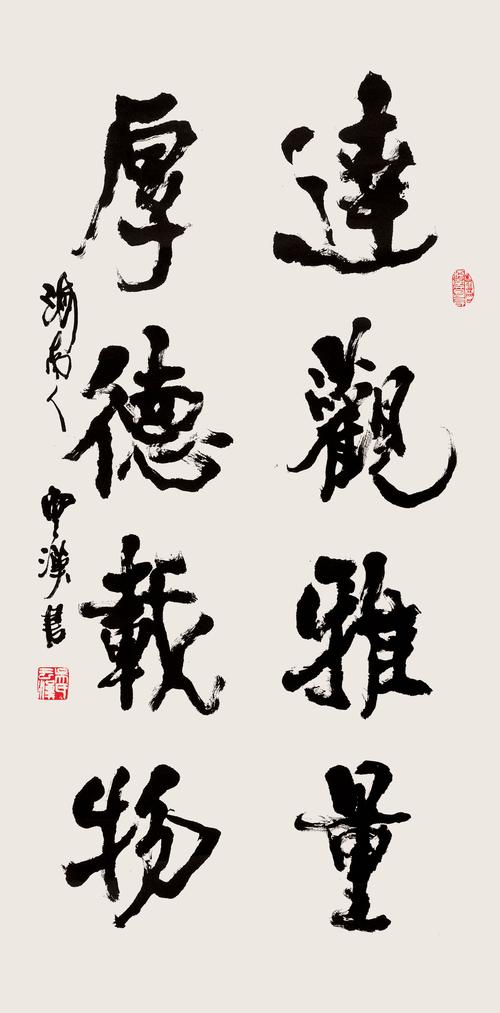 達觀雅量
厚德載物
海南人
雲漢書